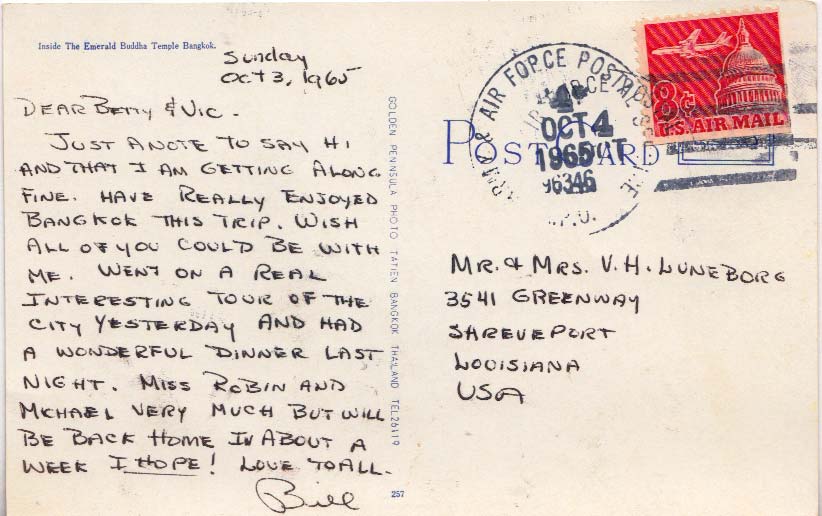 Inside The Emerald Buddha Temple Bangkok.
Sunday
Oct 3, 1965
DEAR BETTY & VIC.
JUST A NOTE TO SAY HI
AND THAT I AM GETTING ALONG
FINE. HAVE REALLY ENJOYED
BANGKOK THIS TRIP. WISH
ALL OF YOU COULD BE WITH
ME. WENT ON A REAL
INTERESTING TOUR OF THE
CITY YESTERDAY AND HAD
A WONDERFUL DINNER LAST
NIGHT. MISS ROBIN AND
MICHAEL VERY MUCH BUT WILL
BE BACK HOME IN ABOUT A
WEEK I HOPE! LOVE TO ALL.
Bill
GOLDEN PENINSULA PHOTO TATIEN BANGKOK THAILAND TEL 26119
257
POST CARD
ARMY & AIR FORCE POSTAL
OCT 4
1965
96346
8¢
U.S. AIR MAIL
MR. & MRS. V. H. LUNEBORG
3541 GREENWAY
SHREVEPORT
LOUISIANA
USA